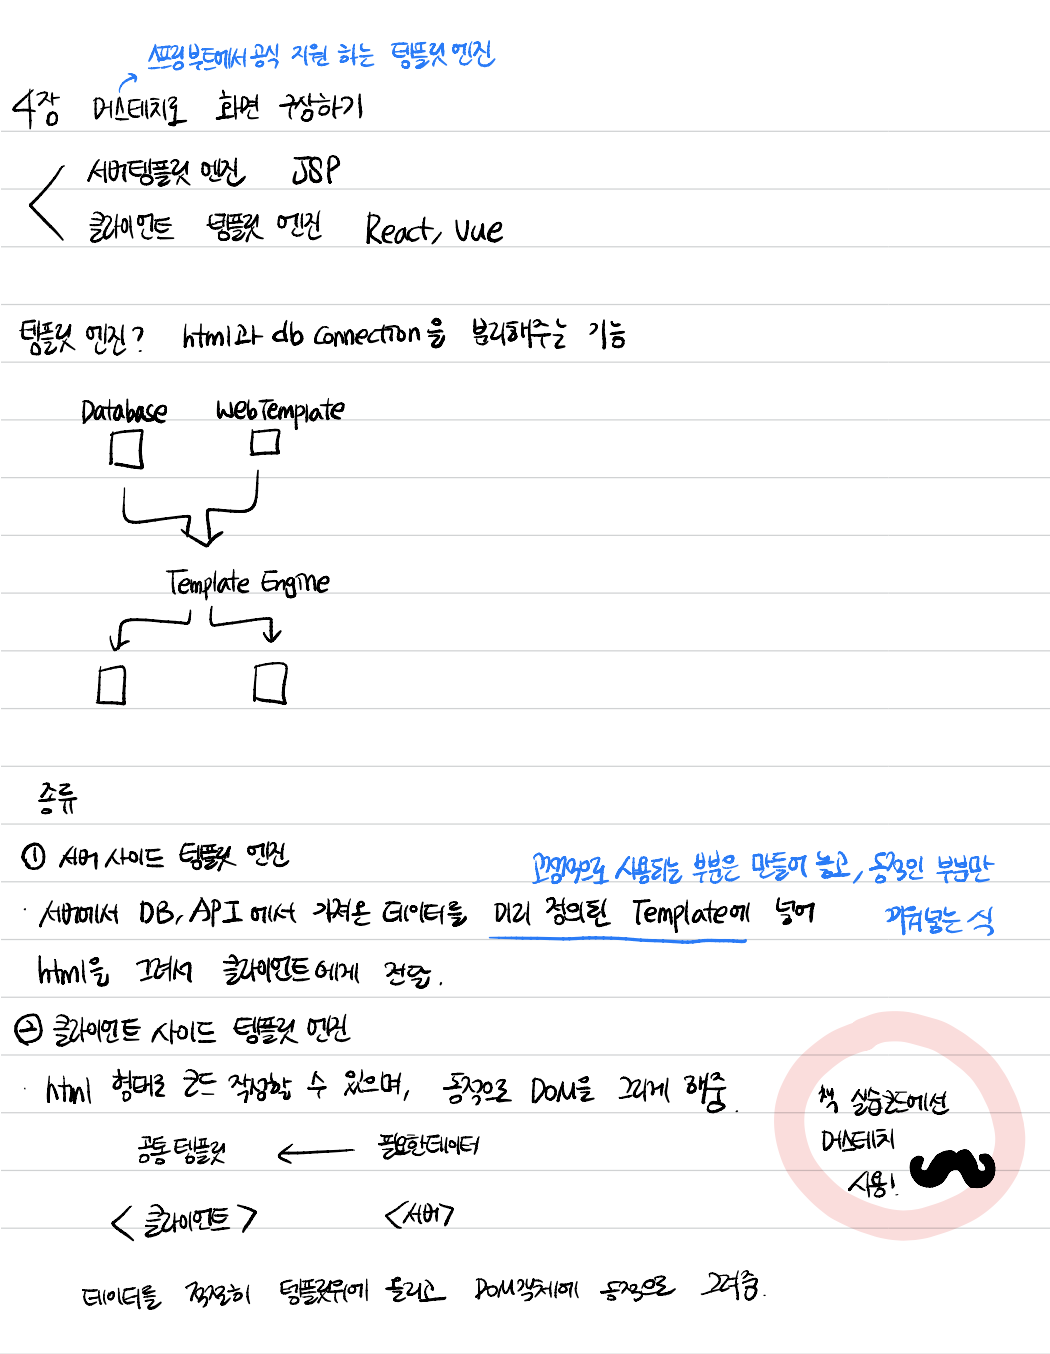 스프링부트에서 공식 지원 하는 템플릿 엔진
4장 머스테치로 화면 구성하기
서버템플릿 엔진 JSP
클라이언트 템플릿 엔진 React, Vue
템플릿 엔진? html과 db connection을 분리해주는 기능
Database WebTemplate
Template Engine
종류
① 서버 사이드 템플릿 엔진
고정적으로 사용되는 부분은 만들어 놓고, 동적인 부분만
· 서버에서 DB, API에서 가져온 데이터를 미리 정의된 Template에 넣어
끼워넣는 식
html을 그려서 클라이언트에게 전달.
② 클라이언트 사이드 템플릿 엔진
· html 형태로 코드 작성할 수 있으며, 동적으로 DOM을 그리게 해줌.
책 실습코드에선
머스테치
사용!
공통템플릿 ← 필요한데이터
<클라이언트> <서버>
데이터를 적절히 템플릿위에 올리고 DOM객체에 동적으로 그려줌.